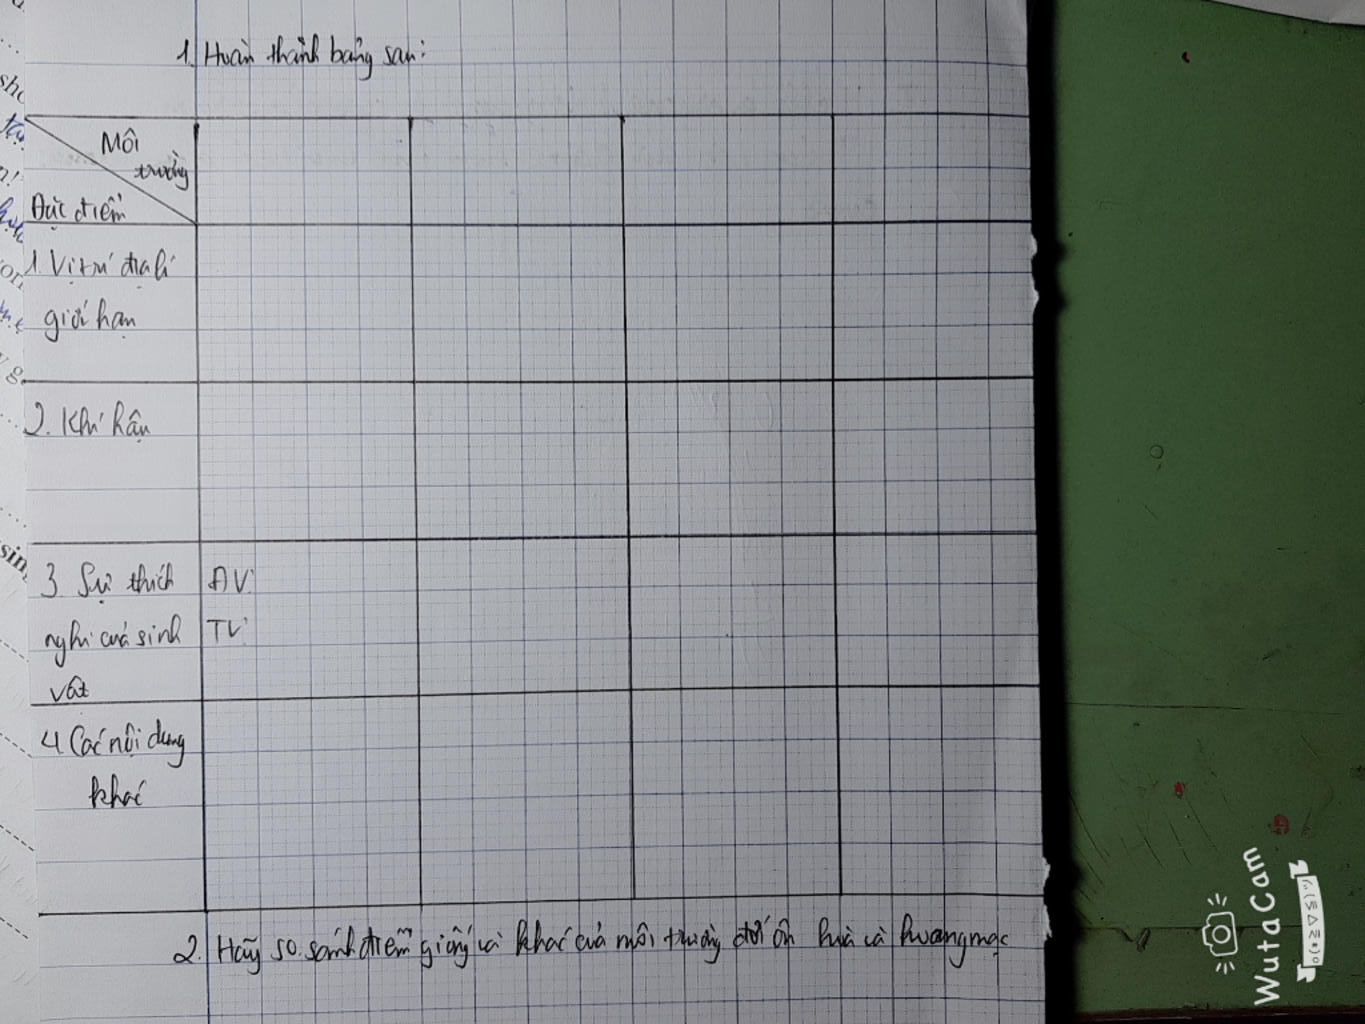 1. Hoàn thành bảng sau:
Môi
trường
Đặc điểm
1. Vị trí địa lí
giới hạn
2. Khí hậu
3 Sự thích
nghi của sinh
vật
ĐV:
TV:
4 Các nội dung
khác
2. Hãy so sánh điểm giống và khác của môi trường đới ôn hoà và hoang mạc
WutaCam